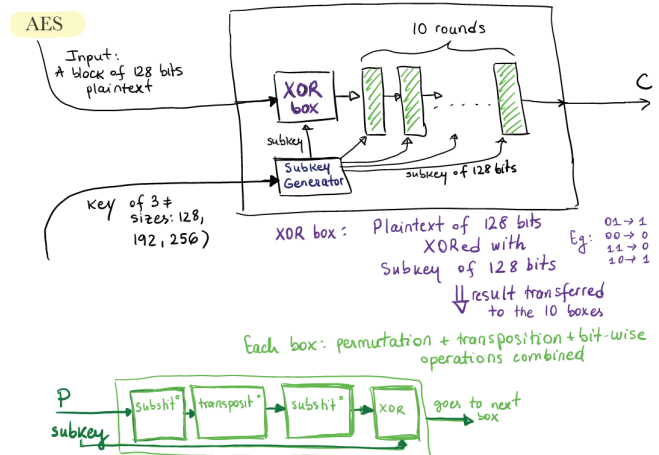 AES
Input:
A block of 128 bits
plaintext
10 rounds
XOR
box
C
subkey
Subkey
Generator
subkey of 128 bits
Key of 3 ≠
sizes: 128,
192, 256)
XOR box: Plaintext of 128 bits
XORed with
Subkey of 128 bits
Eg: 01→1
00→0
11→0
10→1
⇓ result transferred
to the 10 boxes
Each box: permutation + transposition + bit-wise
operations combined
P
subkey
substit°
transposit°
substit°
XOR
goes to next
box